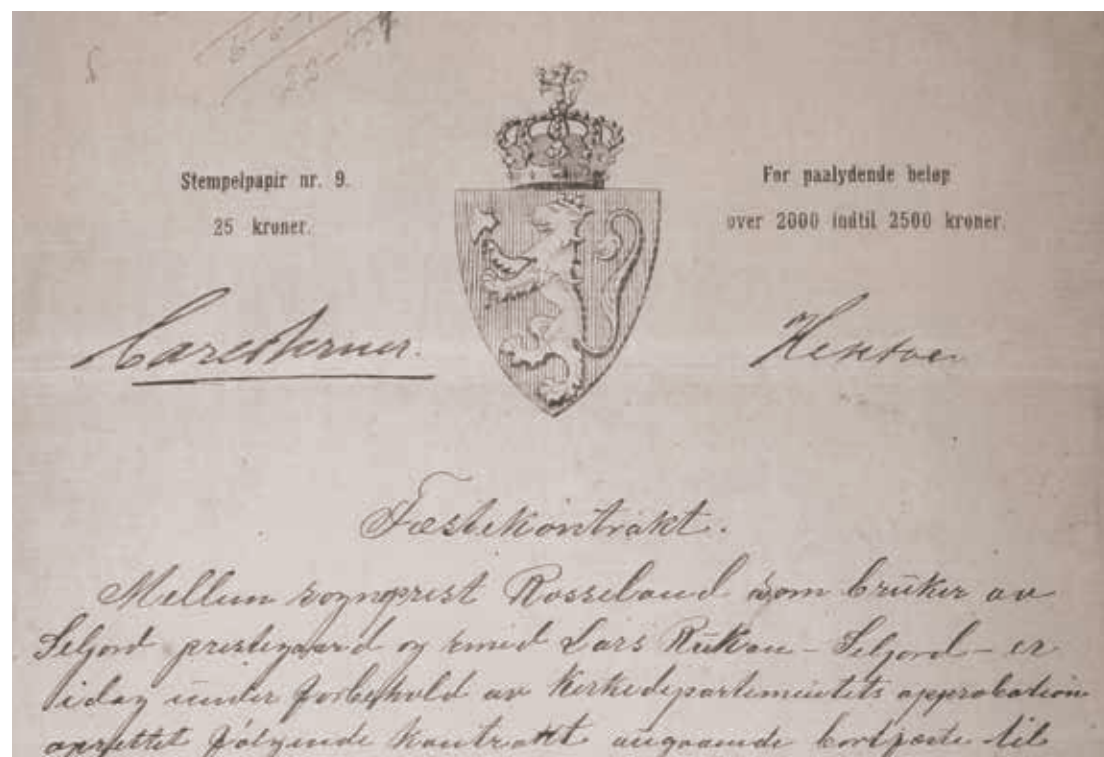 Stempelpapir nr. 9.
25 kroner.
For paalydende beløp
over 2000 indtil 2500 kroner.
Fæstekontrakt.
Mellem sogneprest Rosseland som bruker av
Seljord prestegaard og smed Lars Rukan – Seljord – er
idag under forbehold av Kirkedepartementets approbation
oprettet følgende kontrakt angaaende bortfæste til